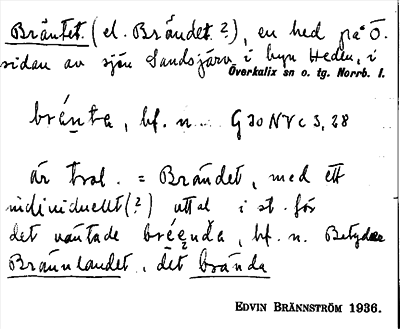 Bräntet (el. Brändet?), en hed på Ö.
sidan av sjön Sandsjärv i byn Heden, i
Överkalix sn o. tg. Norrb. l.
bränta, bf. n. G 30 NV c 3, 28
är trol. = Brändet, med ett
individuellt(?) uttal i st. för
det väntade bréenda, bf. n. Betyder
Brännlandet, det brända
EDVIN BRÄNNSTRÖM 1936.